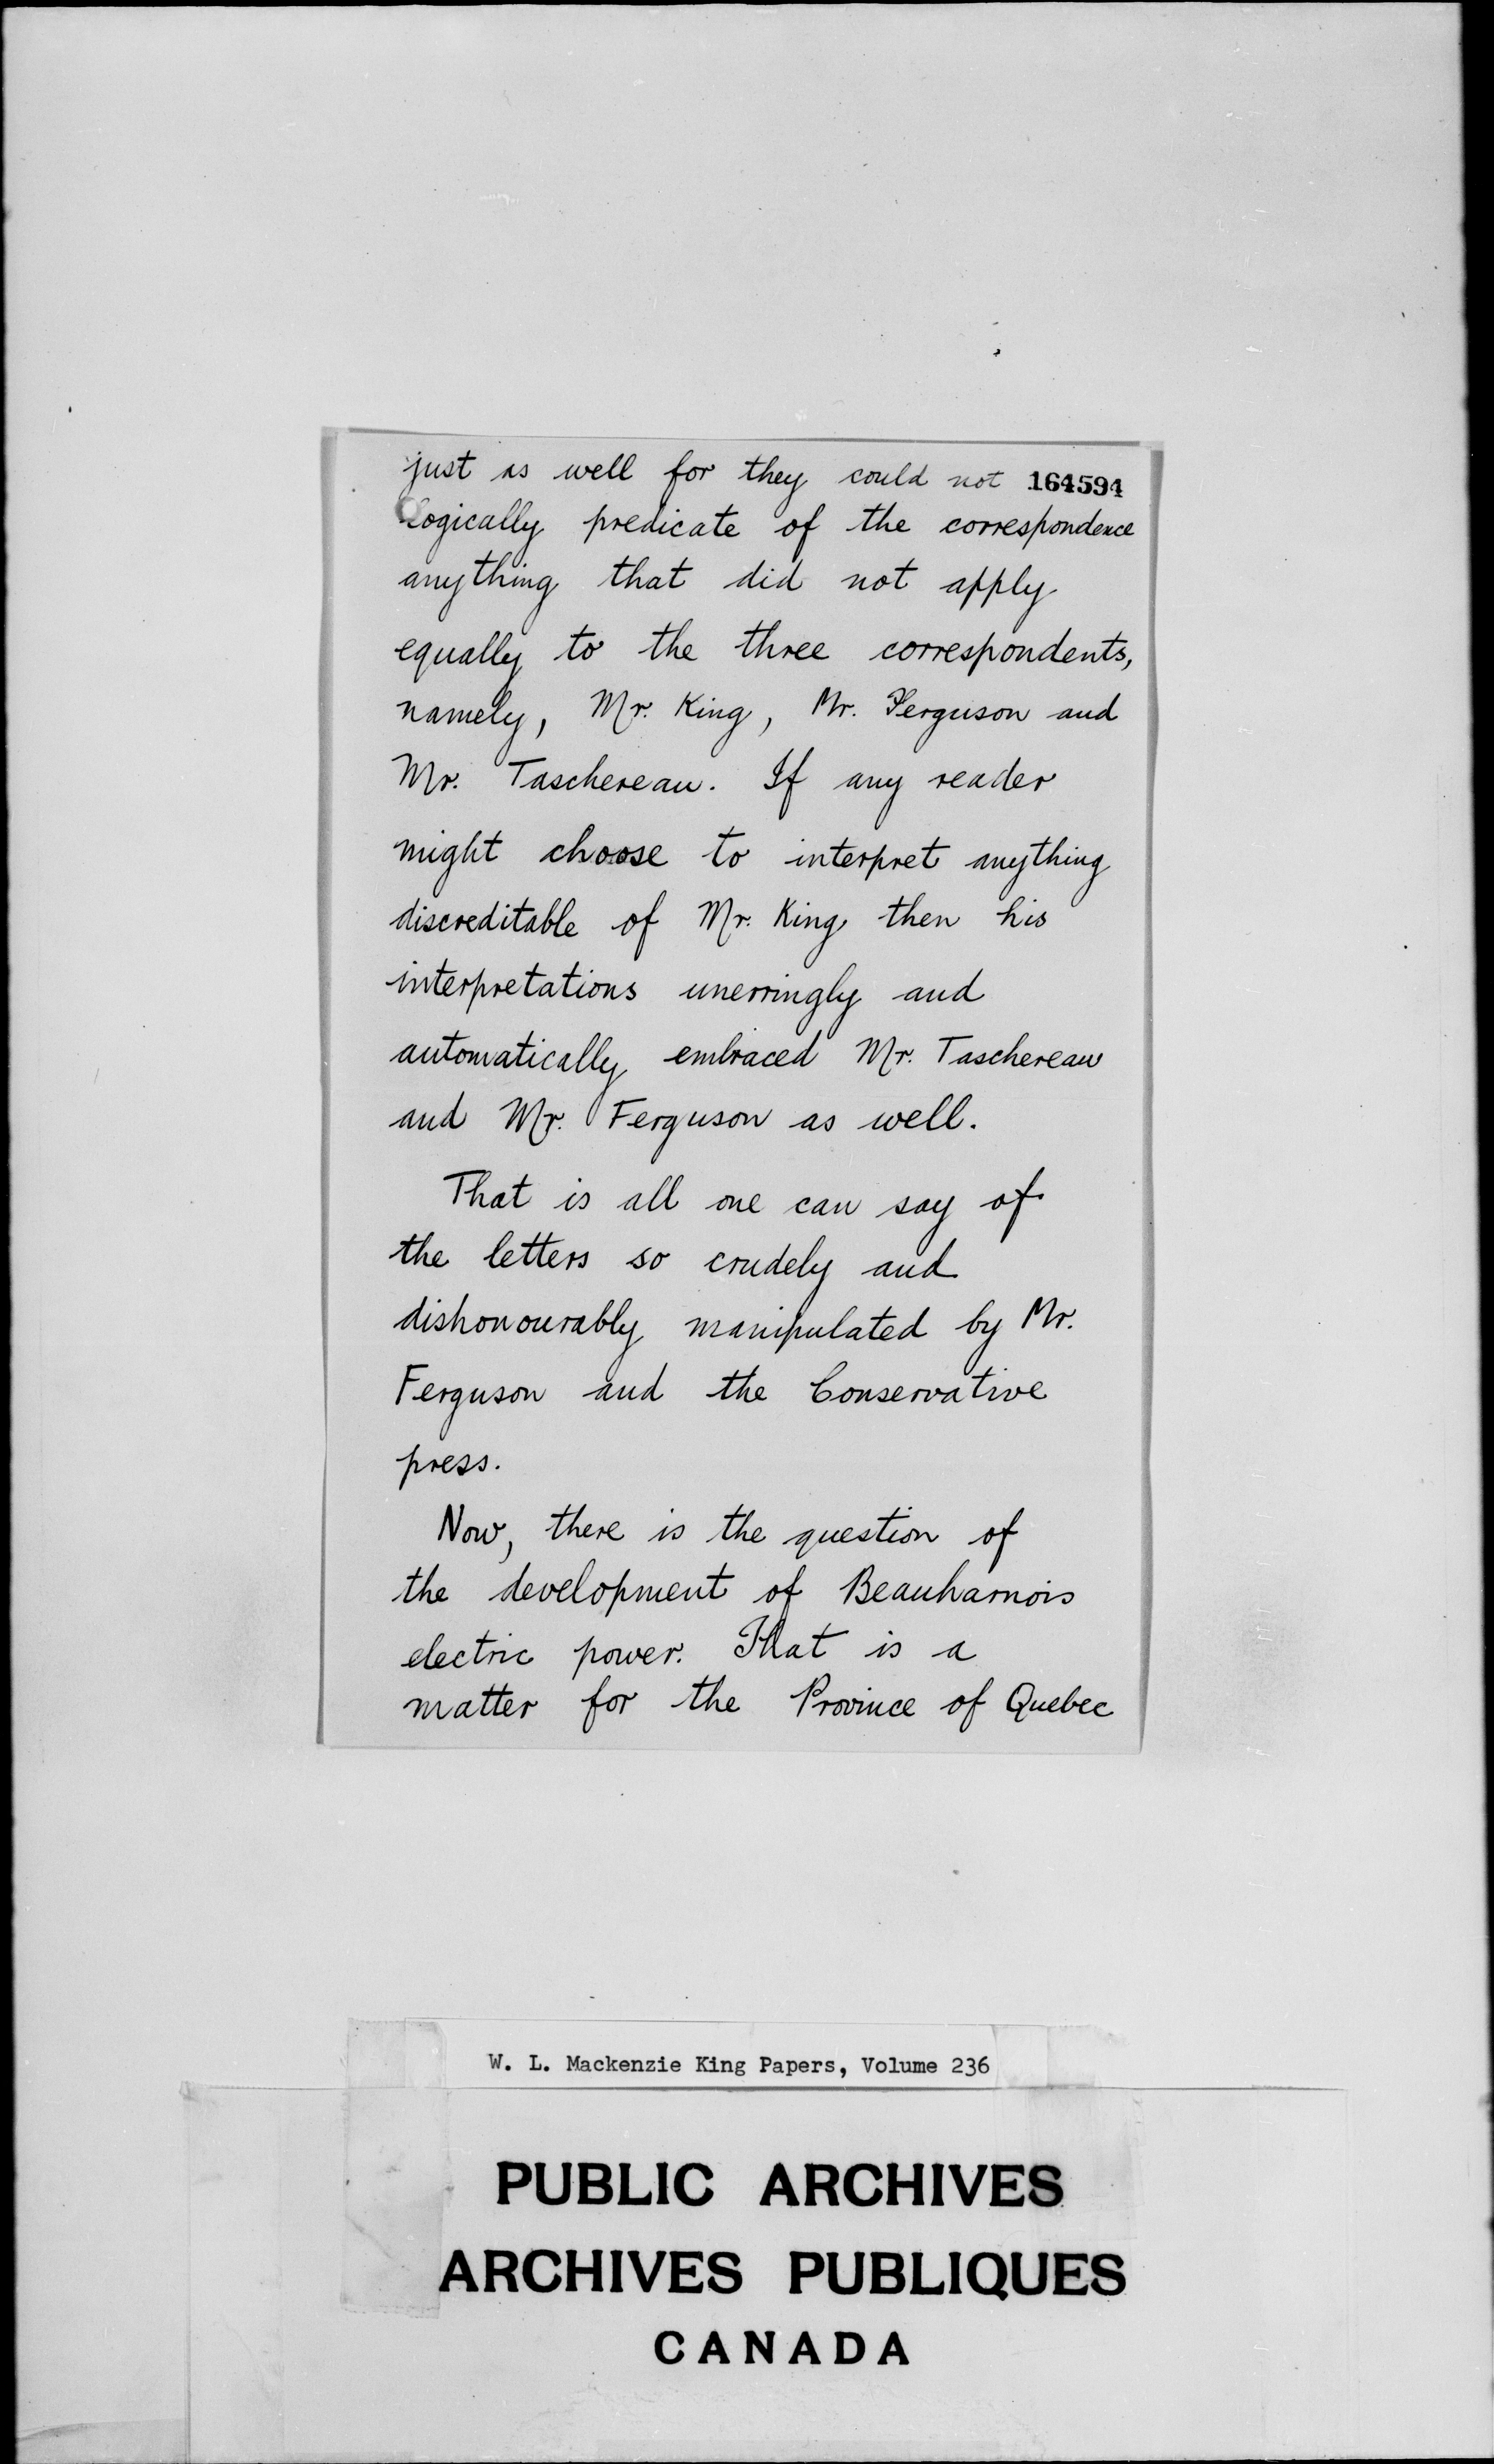 just as well for they could not 164594
logically predicate of the correspondence
anything that did not apply
equally to the three correspondents,
namely, Mr. King, Mr. Ferguson and
Mr. Taschereau. If any reader
might choose to interpret anything
discreditable of Mr. King then his
interpretations unerringly and
automatically embraced Mr. Taschereau
and Mr. Ferguson as well.
That is all one can say of
the letters so crudely and
dishonourably manipulated by Mr.
Ferguson and the Conservative
press.
Now, there is the question of
the development of Beauharnois
electric power. That is a
matter for the Province of Quebec
W. L. Mackenzie King Papers, Volume 236
PUBLIC ARCHIVES
ARCHIVES PUBLIQUES
CANADA